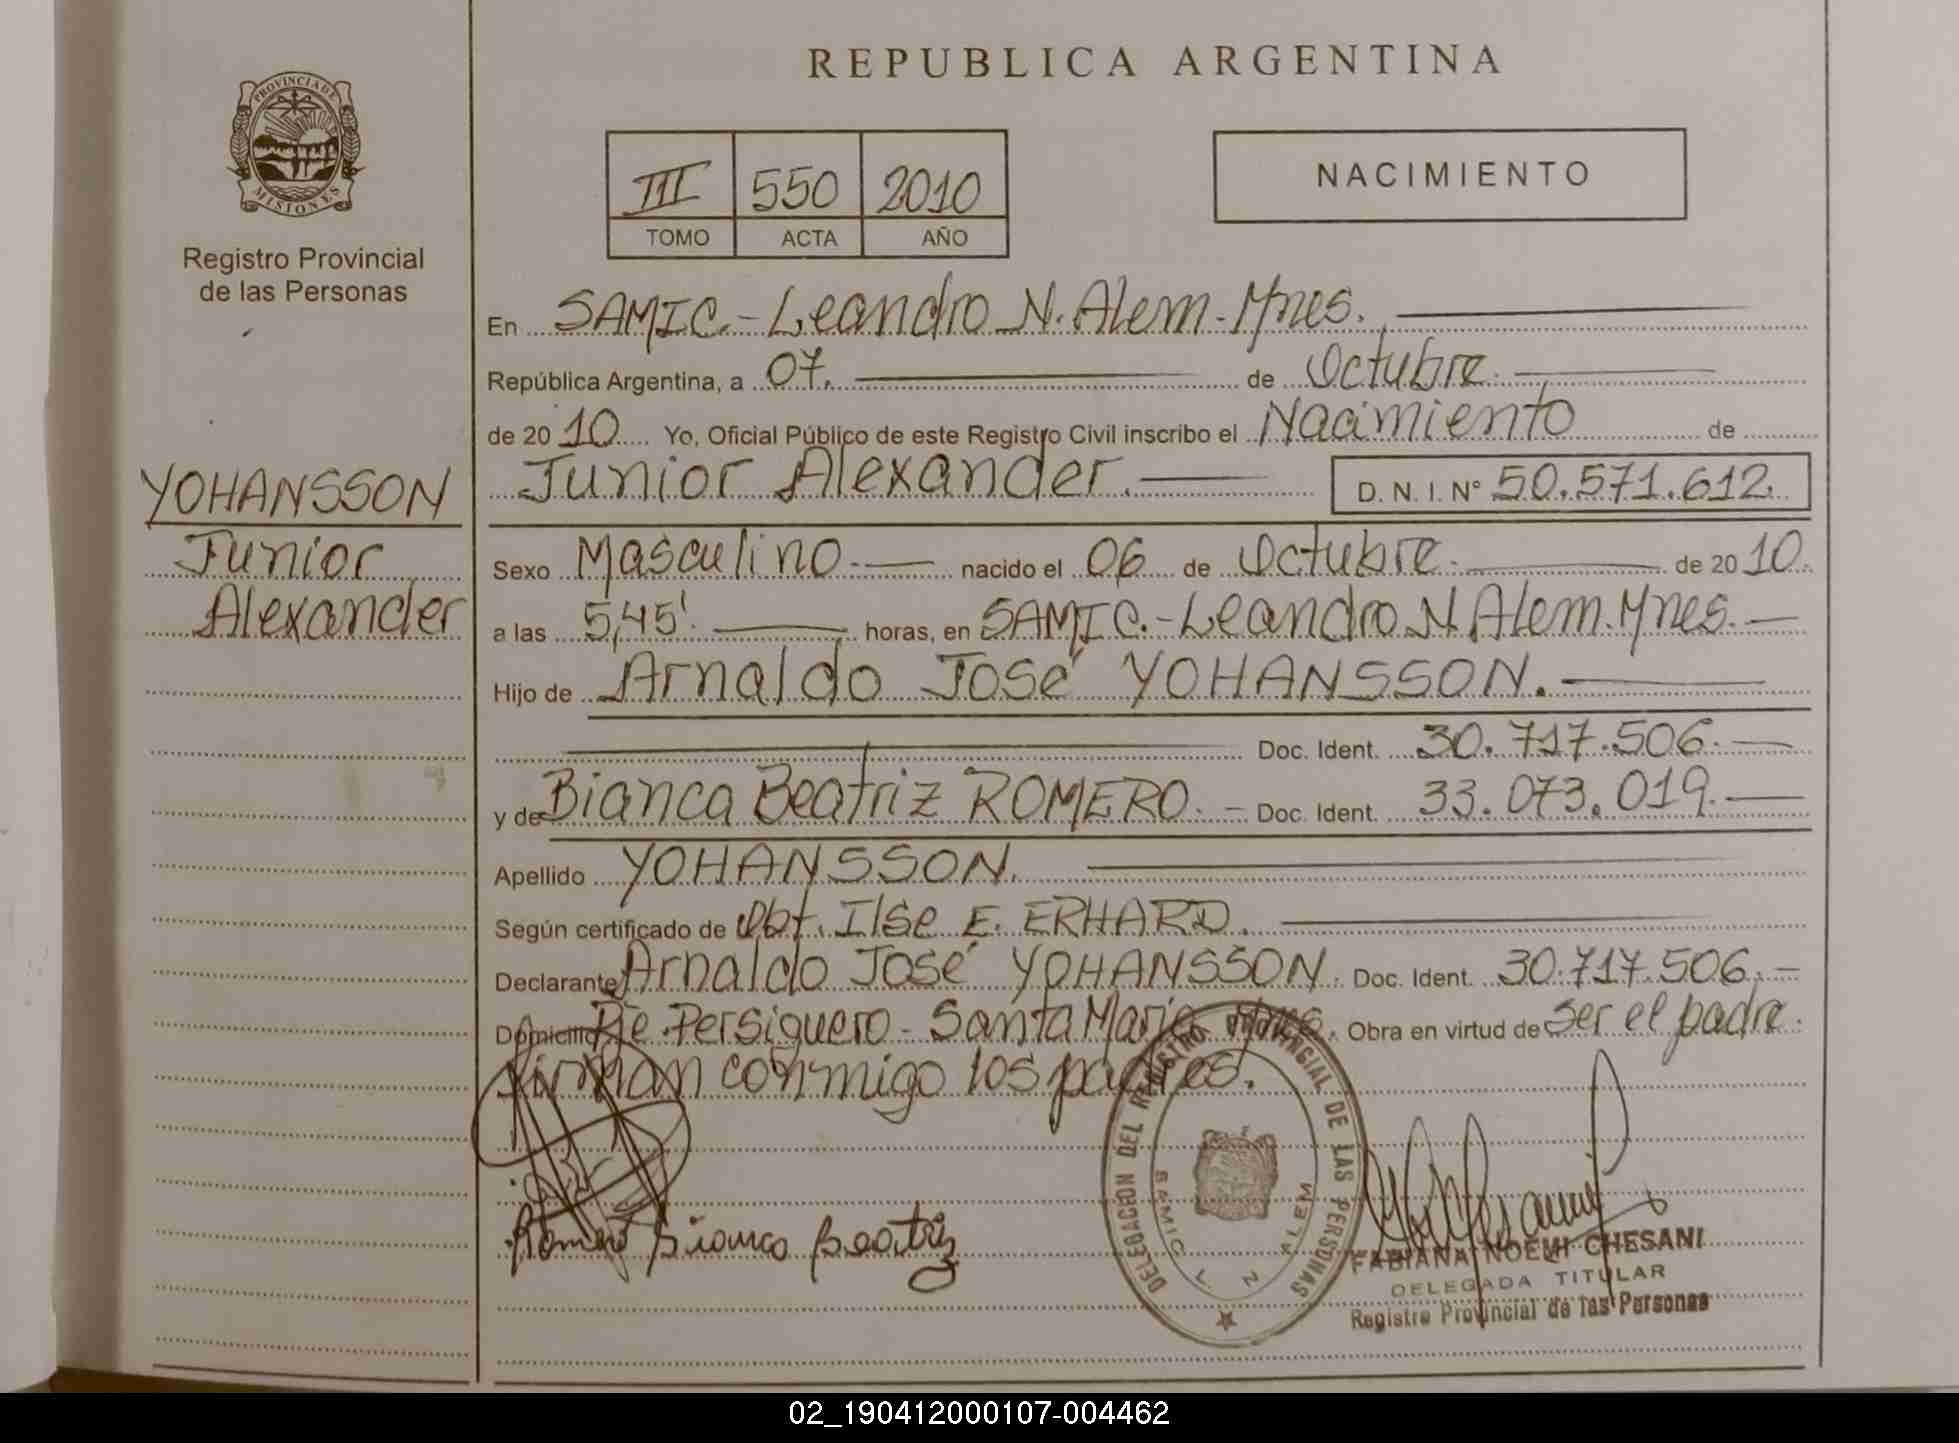 REPUBLICA ARGENTINA
PROVINCIA DE
MISIONES
Registro Provincial
de las Personas
III 550 2010
TOMO ACTA AÑO
NACIMIENTO
En SAMIC.- Leandro N. Alem - Mnes.
República Argentina, a 07. de Octubre.
de 20 10 Yo, Oficial Público de este Registro Civil inscribo el Nacimiento de
Junior Alexander. D. N. I. Nº 50.571.612.
YOHANSSON
Junior
Alexander
Sexo Masculino.- nacido el 06 de Octubre. de 20 10.
a las 5,45'. horas, en SAMIC.- Leandro N Alem. Mnes.-
Hijo de Arnaldo José YOHANSSON.
Doc. Ident. 30.717.506.-
y de Bianca Beatriz ROMERO.- Doc. Ident. 33.073.019.-
Apellido YOHANSSON.
Según certificado de Obt. Ilse E. ERHARD.
Declarante Arnaldo José YOHANSSON. Doc. Ident. 30.717.506.-
Domicilio Pje. Persiguero - Santa María Mnes. Obra en virtud de ser el padre.
Firman conmigo los padres.
DELEGACION DEL REGISTRO PROVINCIAL DE LAS PERSONAS
SAMIC L N ALEM
Romero Bianca Beatriz
FABIANA NOEMI CHESANI
DELEGADA TITULAR
Registro Provincial de las Personas
02_190412000107-004462